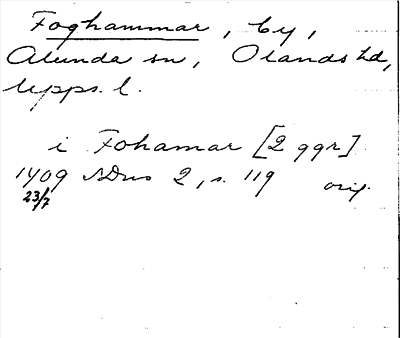 Foghammar, by,
Alunda sn, Olands hd,
Upps. l.
i Fohamar [2 ggr]
1409 SDns 2, s. 119 orig.
23/7